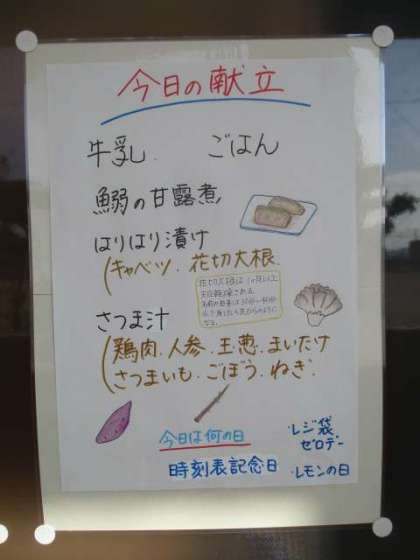 今日の献立
牛乳. ごはん
鰯の甘露煮
はりはり漬け
(キャベツ.花切大根
さつま汁
(鶏肉.人参.玉葱.まいたけ
さつまいも.ごぼう.ねぎ
今日は何の日
時刻表記念日
・レジ袋
ゼロデー
・レモンの日